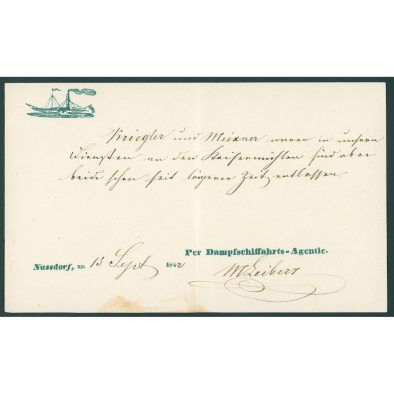 Kriegler und Meixner waren in unsern
Diensten an den Kaisermühlen sind aber
beide schon seit längerer Zeit entlassen.
Per Dampfschiffahrts-Agentie.
Nussdorf, am 15 Sept 1842